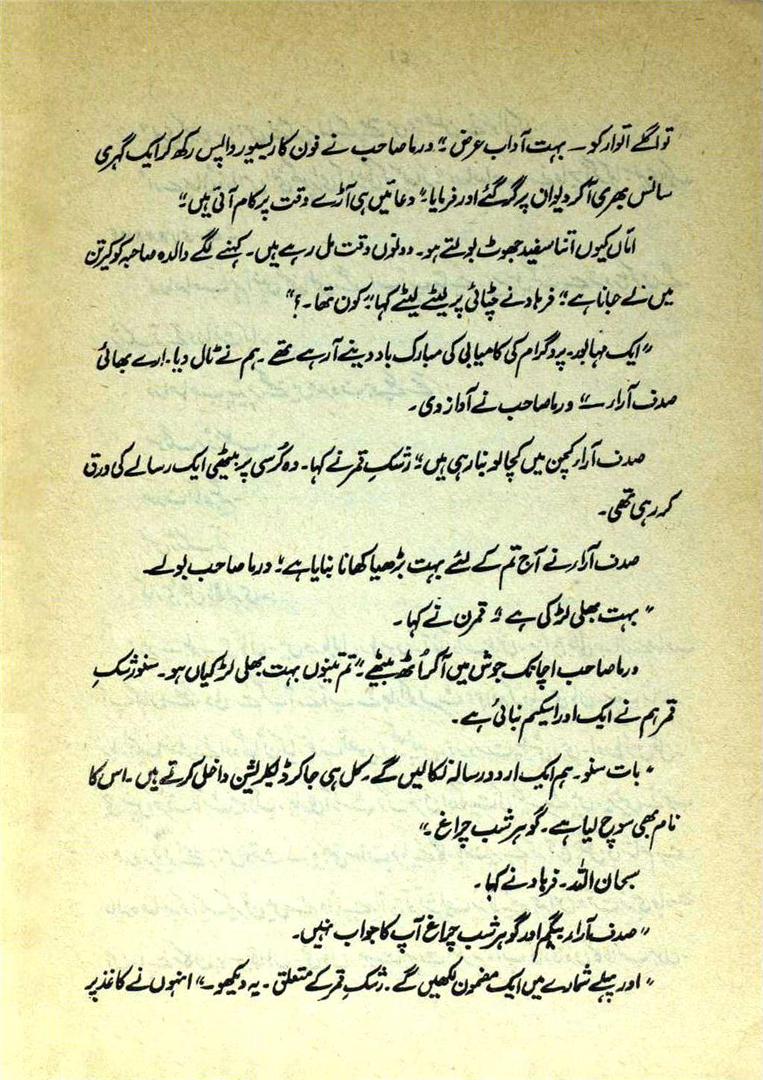 تو اگلے اتوار کو — بہت آداب عرض ۔" ورما صاحب نے فون کا ریسیور واپس رکھ کر ایک گہری
سانس بھری آکر دیوان پر گر گئے اور فرمایا ۔" دعائیں ہی آڑے وقت پر کام آتی ہیں ۔"
امّاں کیوں اتنا سفید جھوٹ بولتے ہو ۔ دونوں وقت مل رہے ہیں ۔ کہنے لگے والدہ صاحبہ کو کیرتن
میں لے جانا ہے ؛" فرہاد نے چٹائی پر لیٹے لیٹے کہا " کون تھا ۔ ؟"
" ایک مہابور ۔ پروگرام کی کامیابی کی مبارک باد دینے آ رہے تھے ۔ ہم نے ٹال دیا ۔ ارے بھائی
صدف آراء —" ورما صاحب نے آواز دی ۔
صدف آراء کچن میں کچالو بنا رہی ہیں " رشکِ قمر نے کہا ۔ وہ کُرسی پر بیٹھی ایک رسالے کی ورق
کر رہی تھی ۔
صدف آراء نے آج تم کے لئے بہت بڑھیا کھانا بنایا ہے ؛" ورما صاحب بولے
" بہت بھلی لڑکی ہے " قمرن نے کہا ۔
ورما صاحب اچانک جوش میں آکر اُٹھ بیٹھے ۔" تم تینوں بہت بھلی لڑکیاں ہو ۔ سنو رشکِ
قمر ہم نے ایک اور اسکیم بنائی ہے ۔
" بات سنو ۔ ہم ایک اردو رسالہ نکالیں گے ۔ کل ہی جا کر ڈیکلریشن داخل کرتے ہیں ۔ اس کا
نام بھی سوچ لیا ہے ۔ گوہرِ شب چراغ ۔"
سبحان اللہ ۔ فرہاد نے کہا ۔
" صدف آراء بیگم اور گوہرِ شب چراغ آپ کا جواب نہیں ۔
" اور پہلے شمارے میں ایک مضمون لکھیں گے ۔ رشکِ قمر کے متعلق ۔ یہ دیکھو ۔" انہوں نے کاغذ پر